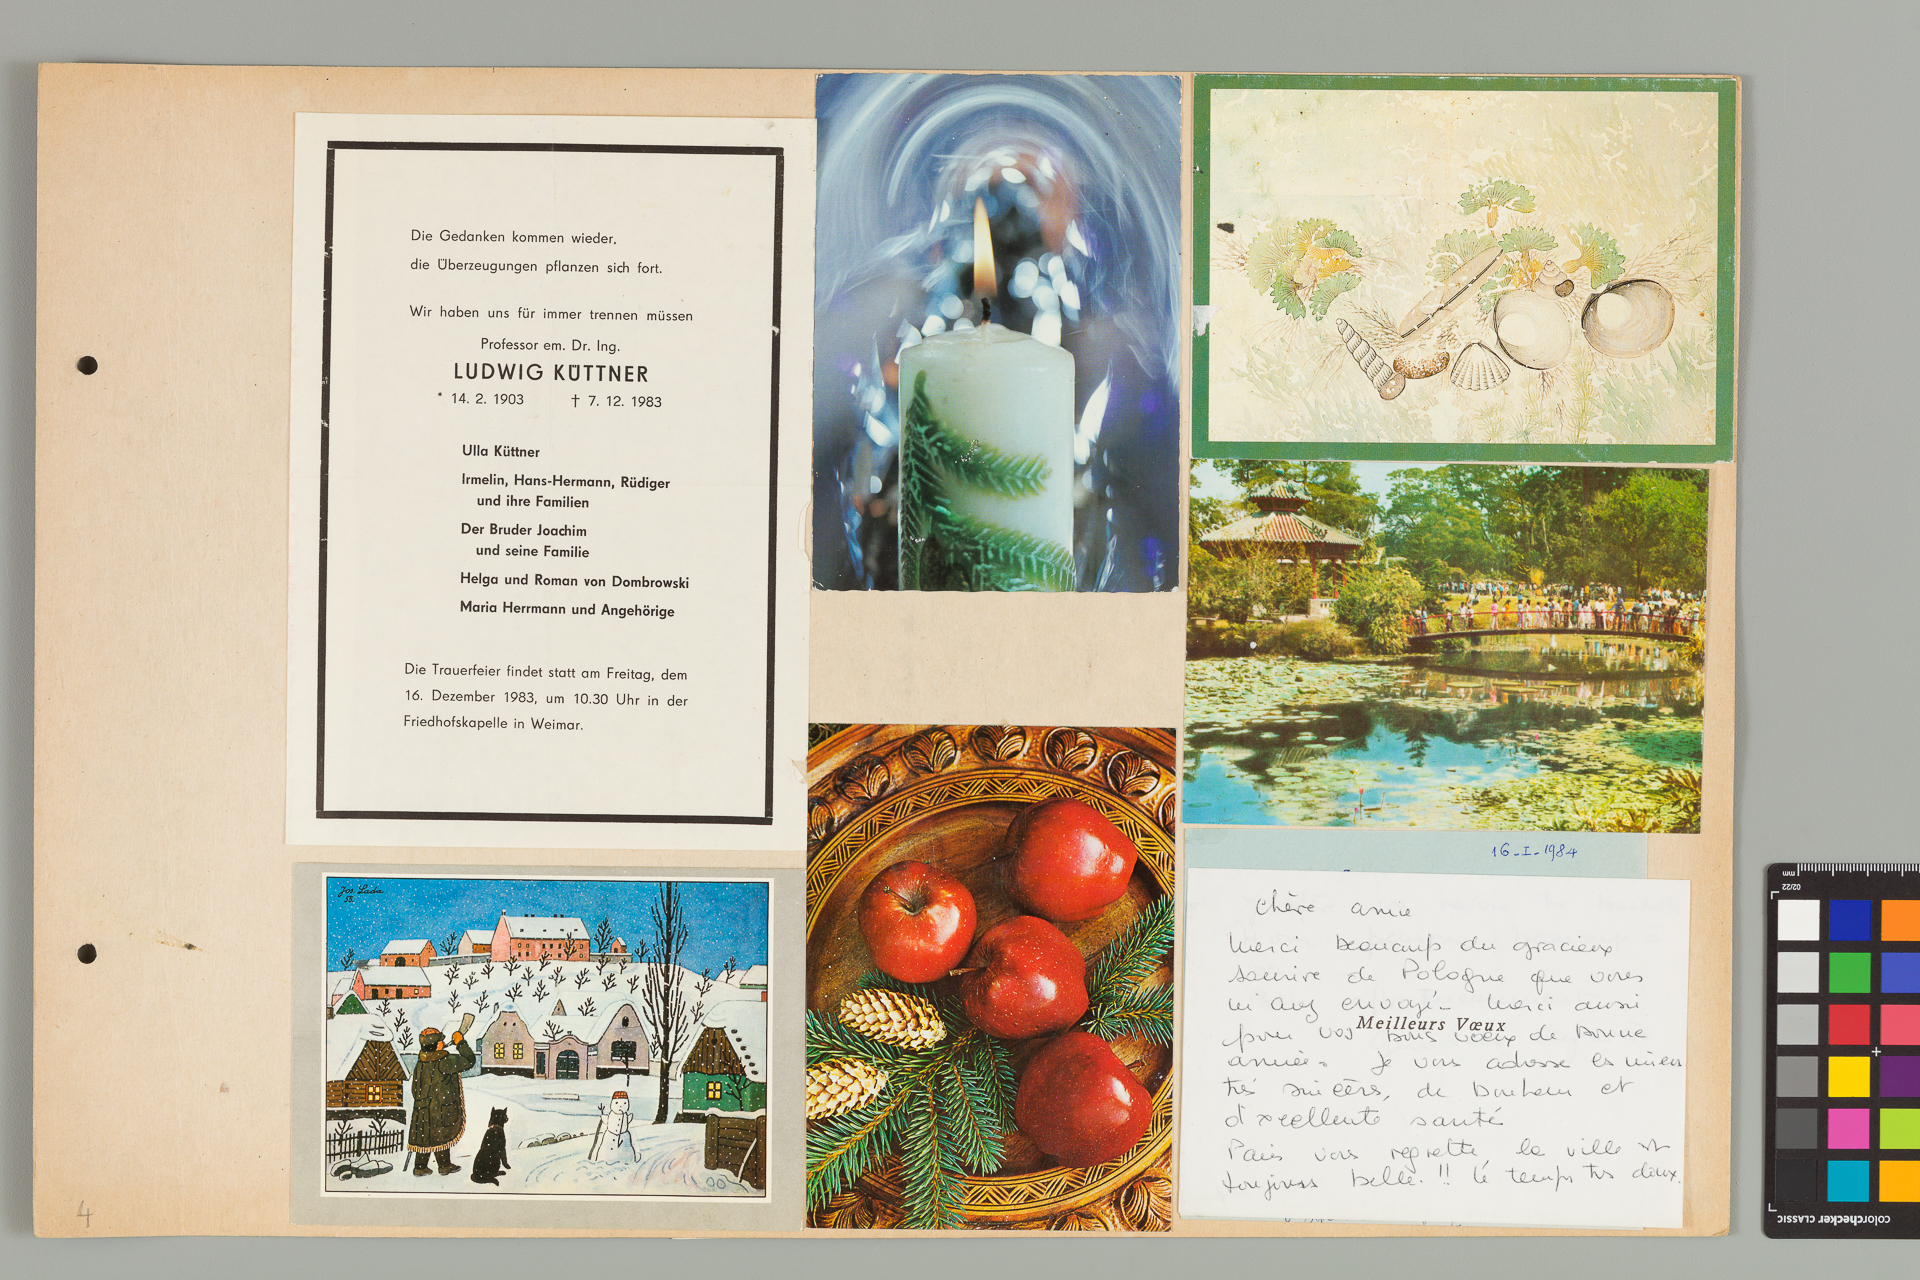 Die Gedanken kommen wieder,
die Überzeugungen pflanzen sich fort.
Wir haben uns für immer trennen müssen
Professor em. Dr. Ing.
LUDWIG KÜTTNER
* 14. 2. 1903 † 7. 12. 1983
Ulla Küttner
Irmelin, Hans-Hermann, Rüdiger
und ihre Familien
Der Bruder Joachim
und seine Familie
Helga und Roman von Dombrowski
Maria Herrmann und Angehörige
Die Trauerfeier findet statt am Freitag, dem
16. Dezember 1983, um 10.30 Uhr in der
Friedhofskapelle in Weimar.
Jos. Lada
58.
16-I-1984
Chère amie
Merci beaucoup du gracieux
sourire de Pologne que vous
m'avez envoyé- Merci aussi
Meilleurs Vœux
pour vos bons vœux de Bonne
année. Je vous adresse les miens
très sincères, de Bonheur et
d'excellente santé
Paris vous regrette, la ville est
toujours belle!! le temps très doux.
4
mm
02/22
colorchecker CLASSIC